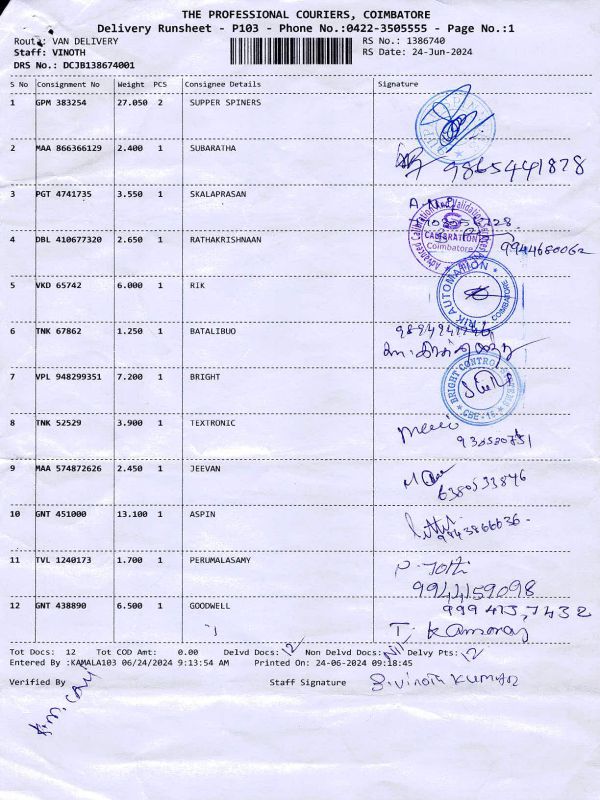 THE PROFESSIONAL COURIERS, COIMBATORE
Delivery Runsheet - P103 - Phone No.:0422-3505555 - Page No.:1
Route: VAN DELIVERY RS No.: 1386740
Staff: VINOTH RS Date: 24-Jun-2024
DRS No.: DCJB138674001
S No Consignment No Weight PCS Consignee Details Signature
1 GPM 383254 27.050 2 SUPPER SPINERS
2 MAA 866366129 2.400 1 SUBARATHA 9865441878
3 PGT 4741735 3.550 1 SKALAPRASAN
4 DBL 410677320 2.650 1 RATHAKRISHNAAN CALIBRATION Coimbatore 9944680062
5 VKD 65742 6.000 1 RIK RIK AUTOMATION COIMBATORE
6 TNK 67862 1.250 1 BATALIBUO
7 VPL 948299351 7.200 1 BRIGHT BRIGHT CONTROL CBE - 15
8 TNK 52529 3.900 1 TEXTRONIC
9 MAA 574872626 2.450 1 JEEVAN 6380533846
10 GNT 451000 13.100 1 ASPIN 9843866636
11 TVL 1240173 1.700 1 PERUMALASAMY P. Jothi
9944159098
12 GNT 438890 6.500 1 GOODWELL 999 413,7432
T. Kamaraj
Tot Docs: 12 Tot COD Amt: 0.00 Delvd Docs: 12 Non Delvd Docs: Nil Delvy Pts: 12
Entered By :KAMALA103 06/24/2024 9:13:54 AM Printed On: 24-06-2024 09:18:45
Verified By Staff Signature S. Vinoth Kumar